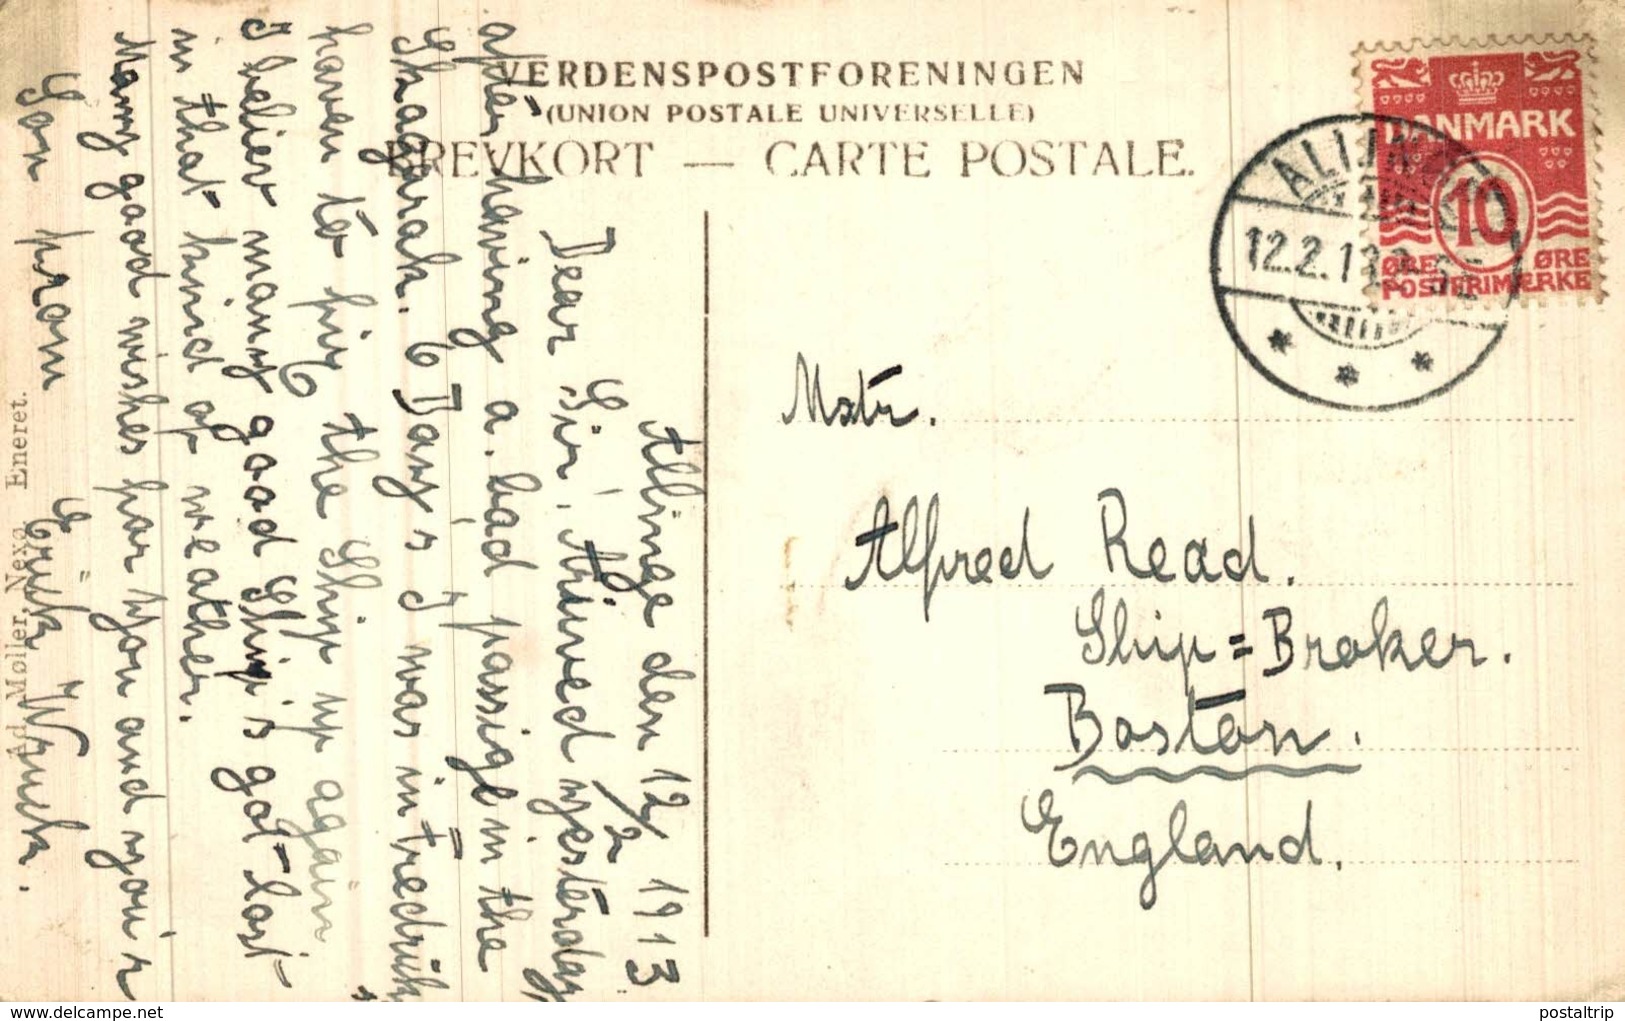 VERDENSPOSTFORENINGEN
(UNION POSTALE UNIVERSELLE)
BREVKORT — CARTE POSTALE.
DANMARK
10
ØRE ØRE
POSTFRIMÆRKE
12.2.13
Allinge den 12/2 1913
Dear Sir! Arived yjesterday
after having a. bad passige in the
Skagarak. 6 Day's I was in Fredrik
haven to fix the Ship up again
I beliew many good Ship's got lost
in that kind of weather.
Many good wishes for Yjou and yjou'r
Son from
Erick Wruck.
Mstr.
Alfred Read.
Ship=Broker.
Boston.
England.
Ad. Møller, Nexø. Eneret.
www.delcampe.net
postaltrip